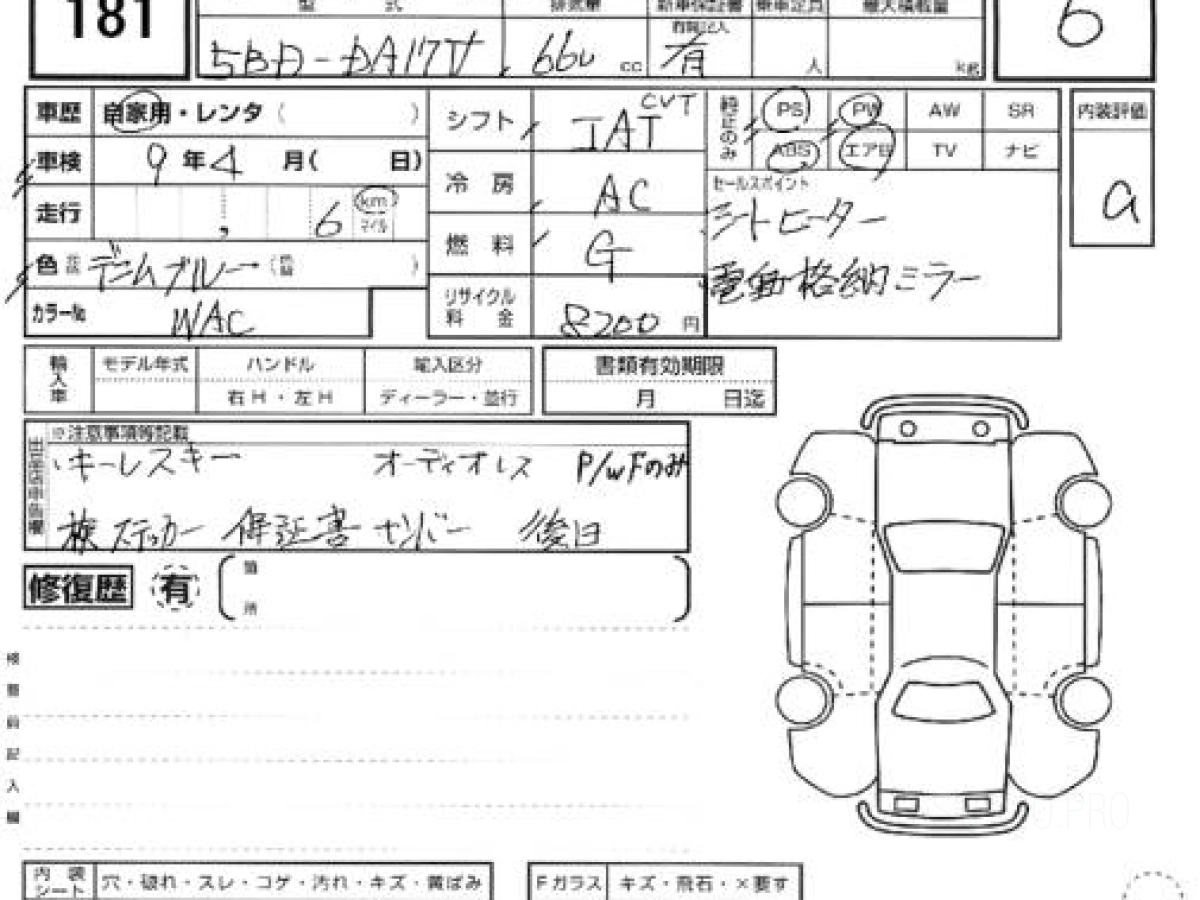 181
型 式 排気量 新車保証書 乗車定員 最大積載量
有
5BD-DA17V 660 cc 人 kg
6
車歴 自家用・レンタ ( )
シフト IAT CVT
純正のみ PS PW AW SR
ABS エアB TV ナビ
内装評価
a
車検 9 年 4 月( 日)
走行 , 6 km マイル
冷房 AC
セールスポイント
シートヒーター
電動格納ミラー
燃料 G
色 デニムブルー ( )
カラー№ WAC
リサイクル料金 8200 円
輸入車 モデル年式 ハンドル 輸入区分
右H・左H ディーラー・並行
書類有効期限
月 日迄
※注意事項等記載
キーレスキー オーディオレス P/W Fのみ
旗 ステッカー 保証書 ナンバー 後日
修復歴 有 ( 箇所 )
検査員記入欄
内装シート 穴・破れ・スレ・コゲ・汚れ・キズ・黄ばみ
Fガラス キズ・飛石・×要す